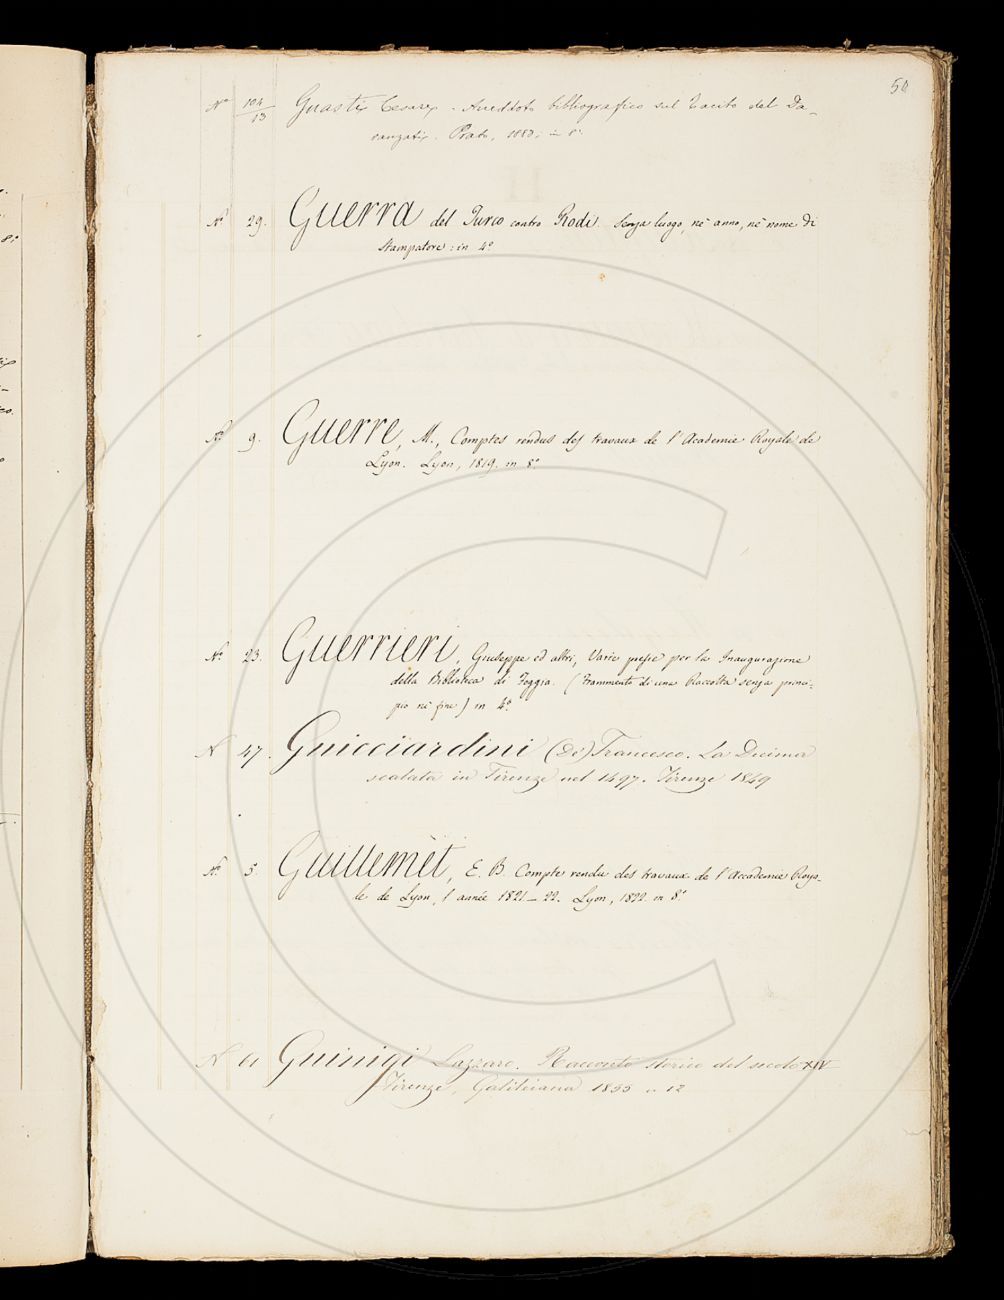 50
N° 104/13 Guasti Cesare - Aneddoto bibliografico sul Tacito del Da-
vanzati. Prato, 1883; in 8°
N° 29. Guerra del Turco contro Rodi. Senza luogo, nè anno, nè nome di
Stampatore: in 4°
N° 9. Guerre, M., Comptes rendus des travaux de l'Academie Royale de
Lyon. Lyon, 1819. in 8°
N° 23. Guerrieri, Giuseppe ed altri, Varie prose per la Inaugurazione
della Biblioteca di Foggia. (Frammento di una Raccolta senza princi-
pio nè fine) in 4°
N 47. Guicciardini (De) Francesco. La Decima
scalata in Firenze nel 1497. Firenze 1849
N° 5. Guillemet, E. B. Compte rendu des travaux de l'Accademie Roya-
le de Lyon, l'année 1821-22. Lyon, 1822 in 8°
N 61 Guinigi Lazzaro. Racconto storico del secolo XIV
Firenze, Galileiana 1855 in 12